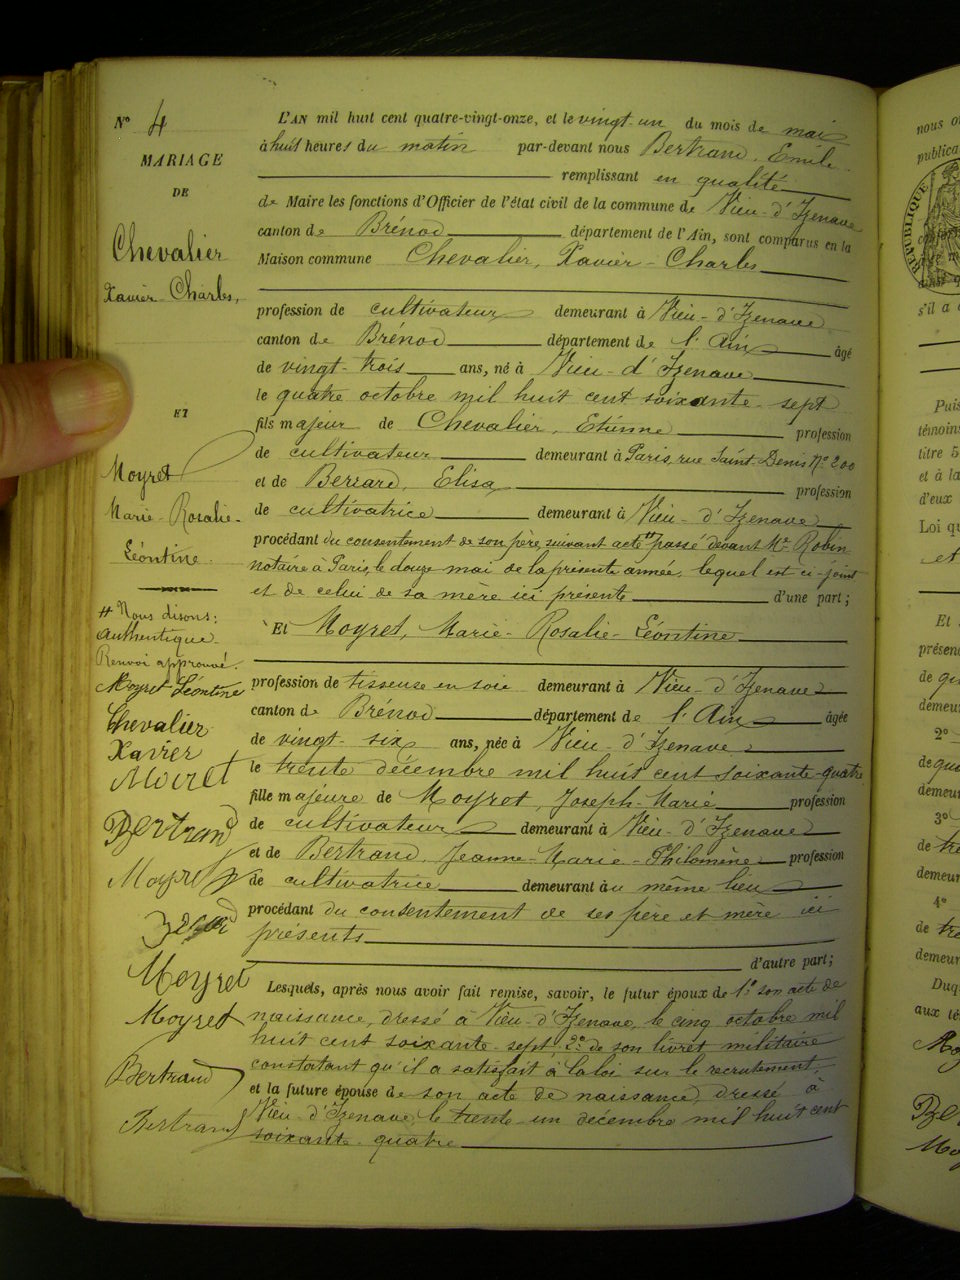 Nº 4
MARIAGE
DE
Chevalier
Xavier-Charles,
ET
Moyret
Marie-Rosalie-
Léontine.
# Nous disons:
Authentique.
Renvoi approuvé.
Moyret Léontine
Chevalier
Xavier
Moiret
Bertrand
Moyret
Moyret
Moyret
Bertrand
Bertrand
L'AN mil huit cent quatre-vingt-onze, et le vingt-un du mois de mai
à huit heures du matin par-devant nous Bertrand, Emile
remplissant en qualité
de Maire les fonctions d'Officier de l'état civil de la commune de Vieu-d'Izenave
canton de Brénod département de l'Ain, sont comparus en la
Maison commune Chevalier, Xavier-Charles
profession de cultivateur demeurant à Vieu-d'Izenave
canton de Brénod département de l'Ain âgé
de vingt-trois ans, né à Vieu-d'Izenave
le quatre octobre mil huit cent soixante-sept
fils majeur de Chevalier, Etienne profession
de cultivateur demeurant à Paris, rue Saint-Denis Nº 200
et de Berrard, Elisa profession
de cultivatrice demeurant à Vieu-d'Izenave
procédant du consentement de son père, suivant acte # passé devant Me Robin
notaire à Paris, le douze mai de la présente année, lequel est ci-joint
et de celui de sa mère ici présente d'une part;
Et Moyret, Marie-Rosalie-Léontine
profession de tisseuse en soie demeurant à Vieu-d'Izenave
canton de Brénod département de l'Ain âgée
de vingt-six ans, née à Vieu-d'Izenave
le trente décembre mil huit cent soixante-quatre
fille majeure de Moyret, Joseph-Marie profession
de cultivateur demeurant à Vieu-d'Izenave
et de Bertrand, Jeanne-Marie-Philomène profession
de cultivatrice demeurant au même lieu
procédant du consentement de ses père et mère ici
présents
d'autre part;
Lesquels, après nous avoir fait remise, savoir, le futur époux de 1º son acte de
naissance, dressé à Vieu-d'Izenave, le cinq octobre mil
huit cent soixante-sept 2º de son livret militaire
constatant qu'il a satisfait à la loi sur le recrutement,
et la future épouse de son acte de naissance, dressé à
Vieu-d'Izenave, le trente-un décembre mil huit cent
soixante-quatre
nous o
publica
RÉPUBLIQUE
s'il a
Puis
témoins
titre 5
et à la
d'eux
Loi qu
et
Et
présen
de qu
demeu
2º
de qua
demeur
3º
de tre
demeur
4º
de tre
demeur
Duq
aux té